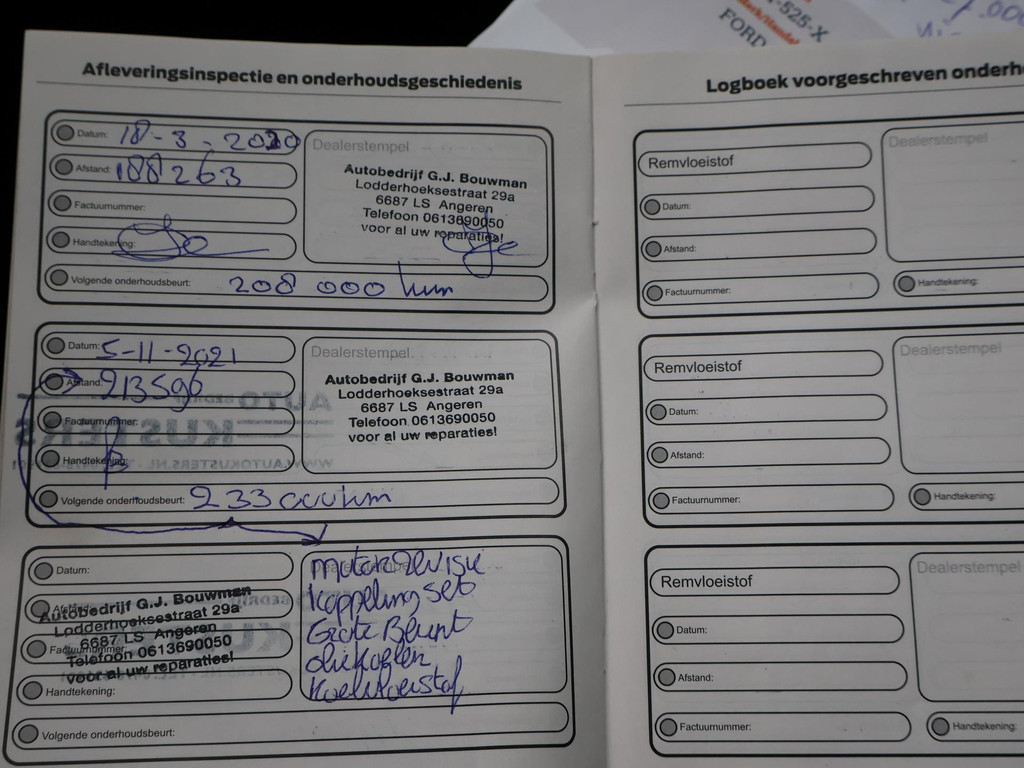 -525-X
FORD
Afleveringsinspectie en onderhoudsgeschiedenis
Datum: 18-3-2020
Afstand: 188263
Factuurnummer:
Handtekening:
Volgende onderhoudsbeurt: 208 000 km
Dealerstempel
Autobedrijf G.J. Bouwman
Lodderhoeksestraat 29a
6687 LS Angeren
Telefoon 0613690050
voor al uw reparaties!
Datum: 5-11-2021
Afstand: 213596
Factuurnummer:
Handtekening:
Volgende onderhoudsbeurt: 233 000 km
Dealerstempel
Autobedrijf G.J. Bouwman
Lodderhoeksestraat 29a
6687 LS Angeren
Telefoon 0613690050
voor al uw reparaties!
AUTOBEDRIJF
KUSTERS
WWW.AUTOKUSTERS.NL
Datum:
Afstand:
Factuurnummer:
Handtekening:
Volgende onderhoudsbeurt:
Autobedrijf G.J. Bouwman
Lodderhoeksestraat 29a
6687 LS Angeren
Telefoon 0613690050
voor al uw reparaties!
Dealerstempel
motor Revisie
Koppeling set
Grote Beurt
Koelvloeistof
Logboek voorgeschreven onderh
Remvloeistof
Datum:
Afstand:
Factuurnummer:
Dealerstempel
Handtekening:
Remvloeistof
Datum:
Afstand:
Factuurnummer:
Dealerstempel
Handtekening:
Remvloeistof
Datum:
Afstand:
Factuurnummer:
Dealerstempel
Handtekening: